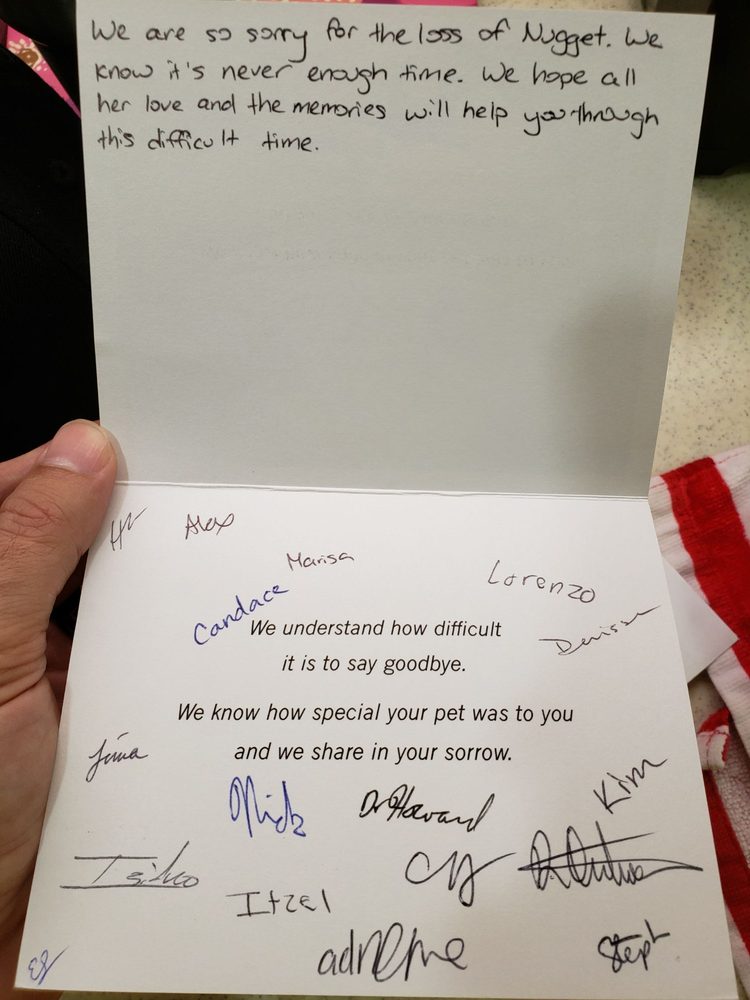 We are so sorry for the loss of Nugget. We
know it's never enough time. We hope all
her love and the memories will help you through
this difficult time.
Alex
Marisa
Lorenzo
Candace
We understand how difficult
it is to say goodbye.
We know how special your pet was to you
and we share in your sorrow.
Nick
Dr Howard
Kim
Itzel
Steph